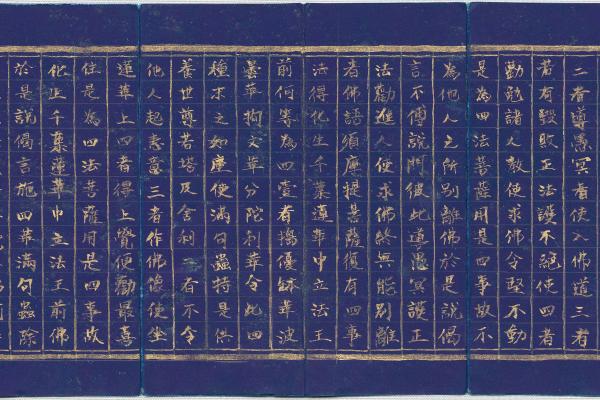 二者導愚冥者使入佛道三者
若有毀敗正法護不絕使四者
勸勉諸人教使求佛令堅不動
是為四法菩薩用是四事故不
為他人之所別離佛於是說偈
言不傅說鬥彼此導愚冥護正
法勸進人使求佛終無能別離
者佛語須摩提菩薩復有四事
法得化生千葉蓮華中立法王
前何等為四壹者擣優鉢華波
曇華拘文華分陀利華令此四
種末之如塵使滿句蠱持是供
養世尊若塔及舍利二者不令
他人起恚意三者作佛像使坐
蓮華上四者得上覺便勸最喜
住是為四法菩薩用是四事故
化生千葉蓮華中立法王前佛
於是說偈言施四華滿句蠱除